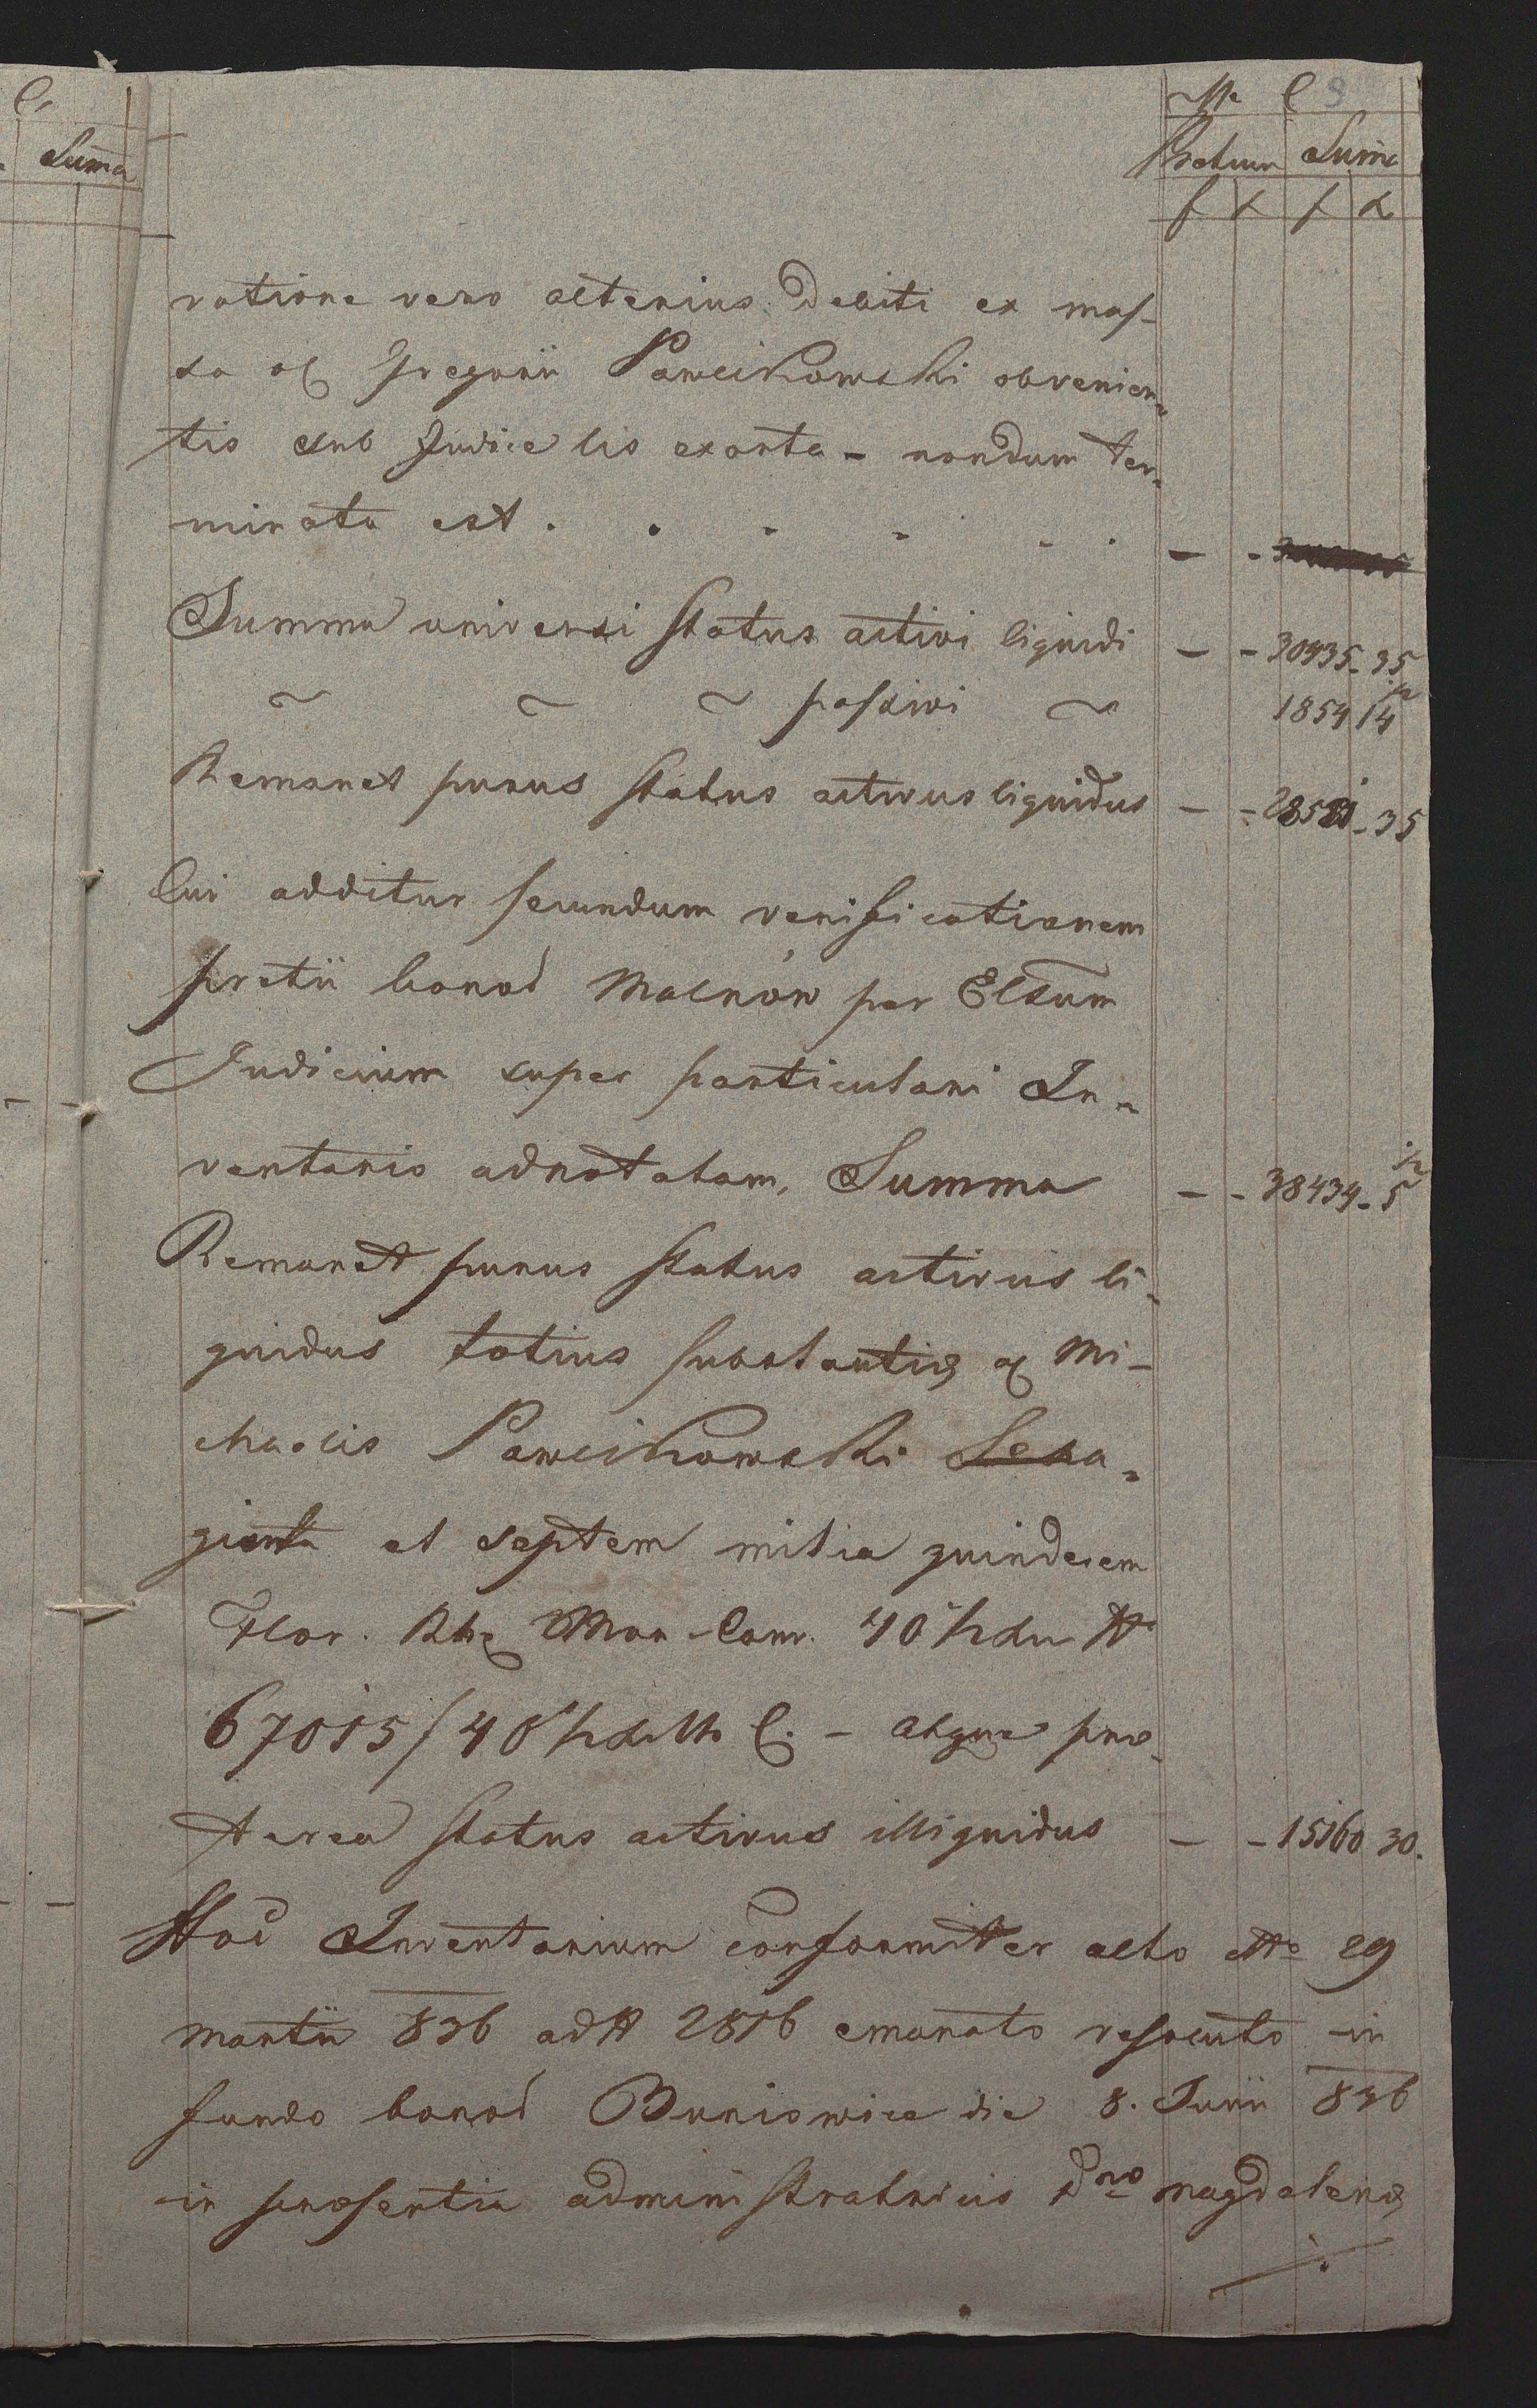 C.
Summa
M C 9
Pretium Suma
f x f x
ratione vero alterius Debiti ex mas-
sa olς Gregorii Pawlikowski obvenien-
tis sub Judice lis exorta - nondum ter-
minata est . . . . . . - -
Summa universi status activi liquidi - - 30435 - 35
~ ~ ~ passivi ~ 1854 14
Remanet purus status activus liquidus - - 28581 - 35
Cui additur secundum verificationem
pretii bonor Malnów per Elsum
Judicium super particulari In-
ventario adnotatam, Summa - - 38434 - 5
Remanet purus status activus li-
quidus totius substantiæ ς Mi-
chaelis Pawlikowski Sexa-
ginta et septem milia quindecem
Flor. Rhς Mon Conv. 40
67015/40 M C. - atque præ-
terea status activus illiquidus - - 15160 30.
Hoc Inventarium conformiter alto dtto 29
Martii 836 ad N 2876 emanato resoluto in
fundo bonor Buniowice die 8. Junii 836
in præsentia administratricis Dnæ Magdalenæ
./.